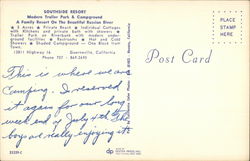 SOUTHSIDE RESORT
Modern Trailer Park & Campground
A Family Resort On The Beautiful Russian River
5 Acres • Private Beach • Individual Cottages
With Kitchens and private bath with showers •
Trailer Park on Riverbank with modern under-
ground facilities • Restrooms • Hot and Cold
Showers • Shaded Campground — One Block from
Town.
13811 Highway 116 Guerneville, California
Phone 707 - 869-2690
Post Card
PLACE
STAMP
HERE
This is where we are
camping. I reserved
it again for our long
week end of July 4th. The
boys are really enjoying it.